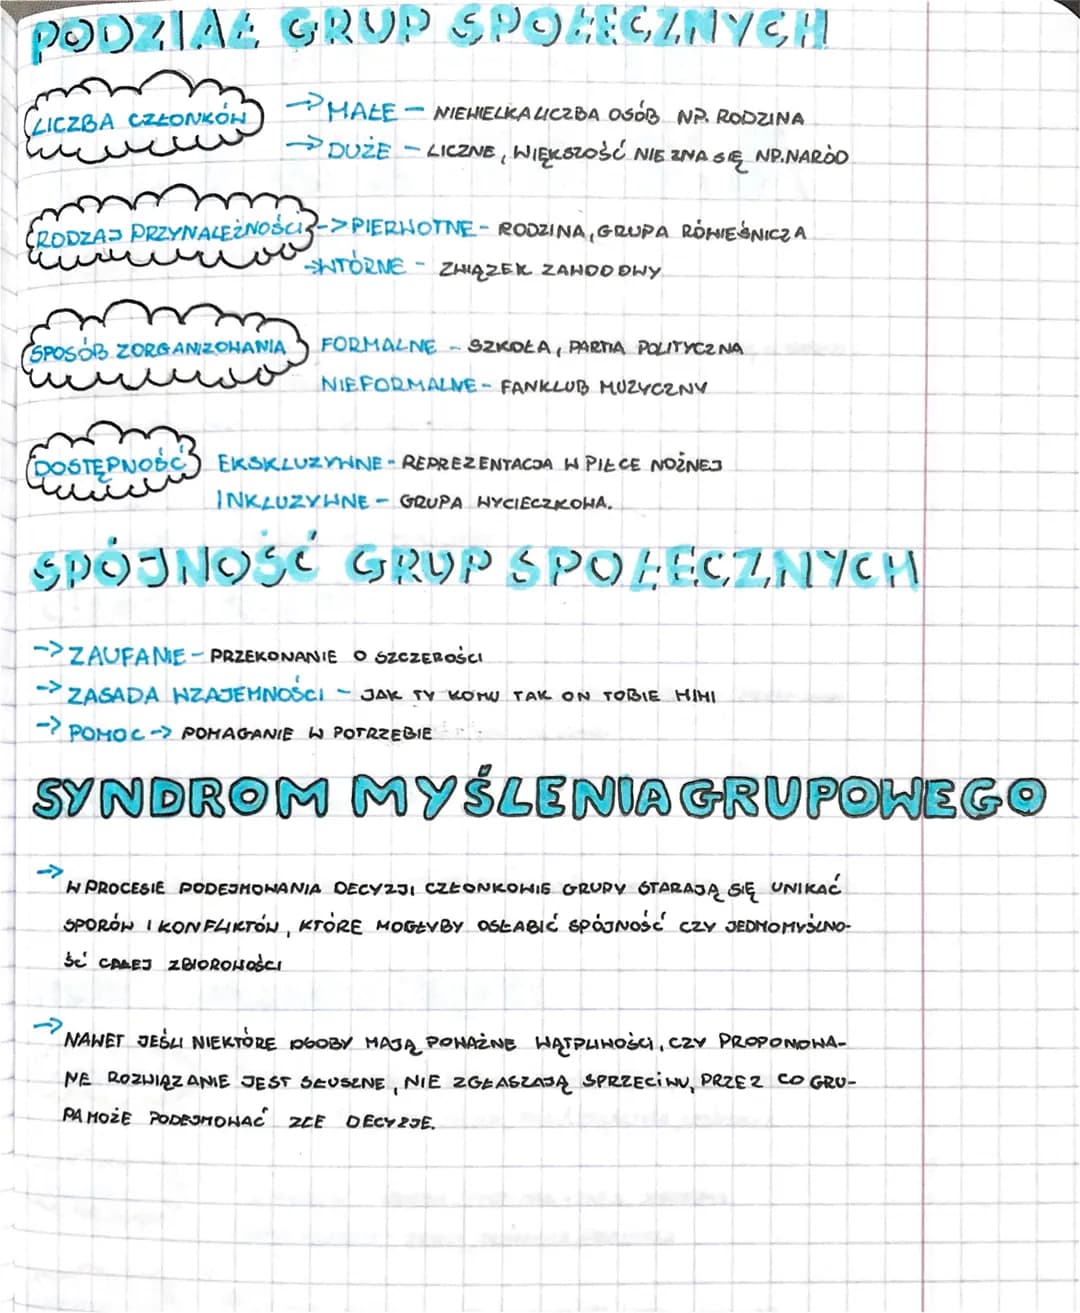 PODZIAŁ GRUP SPOŁECZNYCH
LICZBA CZŁONKÓW
→ MAŁE – NIEWIELKA LICZBA OSÓB NP. RODZINA
→ DUŻE – LICZNE, WIĘKSZOŚĆ NIE ZNA SIĘ NP. NARÓD
RODZAJ PRZYNALEŻNOŚCI -> PIERWOTNE - RODZINA, GRUPA RÓWIEŚNICZA
→ WTÓRNE - ZWIĄZEK ZAWODOWY
SPOSÓB ZORGANIZOWANIA FORMALNE - SZKOŁA, PARTIA POLITYCZNA
NIEFORMALNE - FANKLUB MUZYCZNY
DOSTĘPNOŚĆ EKSKLUZYWNE - REPREZENTACJA W PIŁCE NOŻNEJ
INKLUZYWNE - GRUPA WYCIECZKOWA.
SPÓJNOŚĆ GRUP SPOŁECZNYCH
-> ZAUFANIE - PRZEKONANIE O SZCZEROŚCI
-> ZASADA WZAJEMNOŚCI - JAK TY KOMU TAK ON TOBIE MIMI
-> POMOC -> POMAGANIE W POTRZEBIE
SYNDROM MYŚLENIA GRUPOWEGO
→ W PROCESIE PODEJMOWANIA DECYZJI CZŁONKOWIE GRUPY STARAJĄ SIĘ UNIKAĆ
SPORÓW I KONFLIKTÓW, KTÓRE MOGŁYBY OSŁABIĆ SPÓJNOŚĆ CZY JEDNOMYŚLNO-
ŚĆ CAŁEJ ZBIOROWOŚCI
→ NAWET JEŚLI NIEKTÓRE OSOBY MAJĄ POWAŻNE WĄTPLIWOŚCI, CZY PROPONOWA-
NE ROZWIĄZANIE JEST SŁUSZNE, NIE ZGŁASZAJĄ SPRZECIWU, PRZEZ CO GRU-
PA MOŻE PODEJMOWAĆ ZŁE DECYZJE.